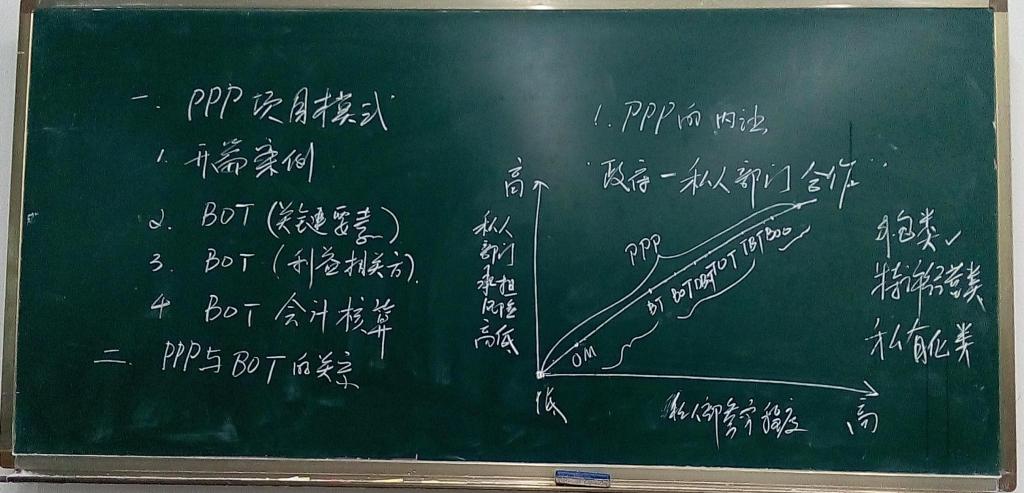 一. PPP项目模式
1. 开篇案例
2. BOT(关键要素)
3. BOT(利益相关方)
4 BOT会计核算
二 PPP与BOT的关系
1. PPP的内涵
"政府-私人部门合作"
高
私人
部门
承担
风险
高低
PPP
OM
BT BOT TOT TBT BOO
低
私人部门参与程度
高
外包类✓
特许经营类
私有化类